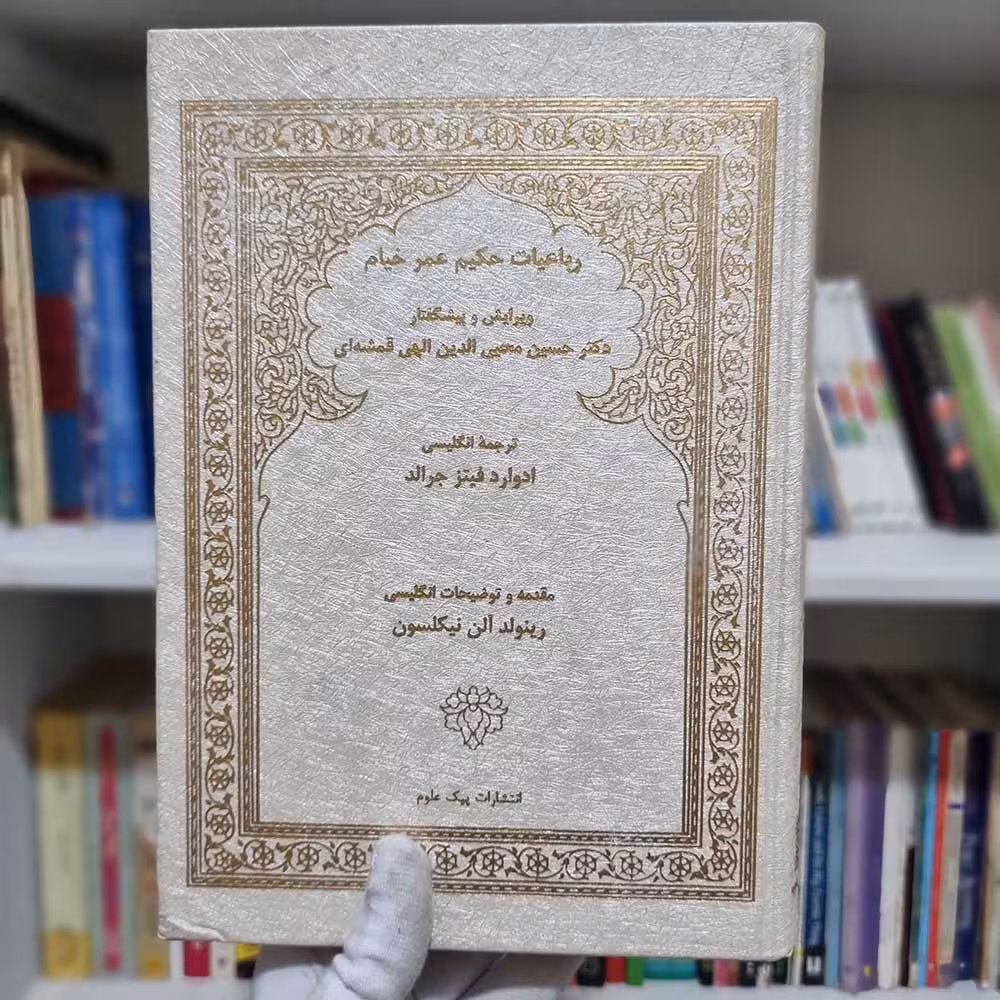 رباعیات حکیم عمر خیام
ویرایش و پیشگفتار
دکتر حسین محیی الدین الهی قمشه‌ای
ترجمهٔ انگلیسی
ادوارد فیتز جرالد
مقدمه و توضیحات انگلیسی
رینولد آلن نیکلسون
انتشارات پیک علوم